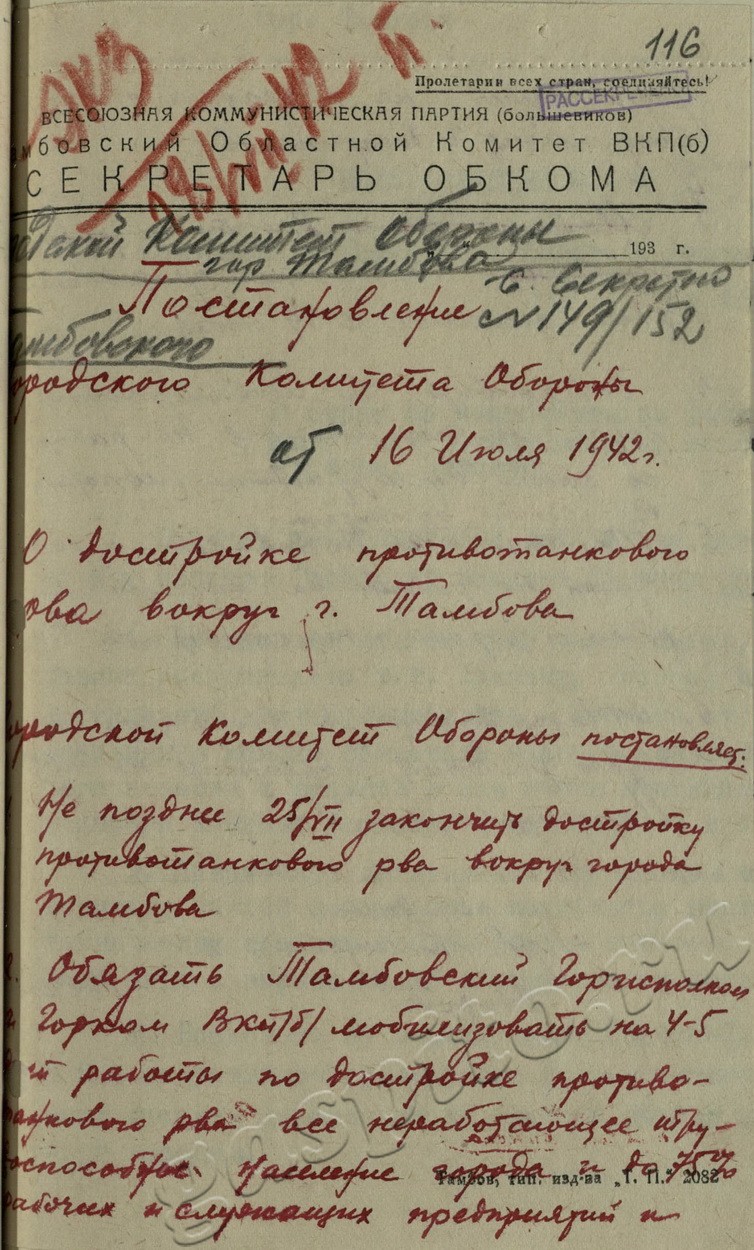 116
Экз
Пролетарии всех стран, соединяйтесь!
РАССЕКРЕЧЕНО
ВСЕСОЮЗНАЯ КОММУНИСТИЧЕСКАЯ ПАРТИЯ (большевиков)
мбовский Областной Комитет ВКП(б)
СЕКРЕТАРЬ ОБКОМА
29/VII 42 г.
родской Комитет Обороны
193 г.
гор Тамбова
С. Секретно
Постановление №149/152
амбовского
ородского Комитета Обороны
от 16 Июля 1942г.
О достройке противотанкового
рва вокруг г. Тамбова
ородской Комитет Обороны постановляет:
Не позднее 25/VII закончить достройку
противотанкового рва вокруг города
Тамбова
2. Обязать Тамбовский Горисполком
и Горком ВКП/б/ мобилизовать на 4-5
работы по достройке противо-
анкового рва все неработающее тру-
оспособное население города и до 75%
Тамбов, тип. изд-ва „Т. П.“ 2082
рабочих и служащих предприятий и
gaspito.ru